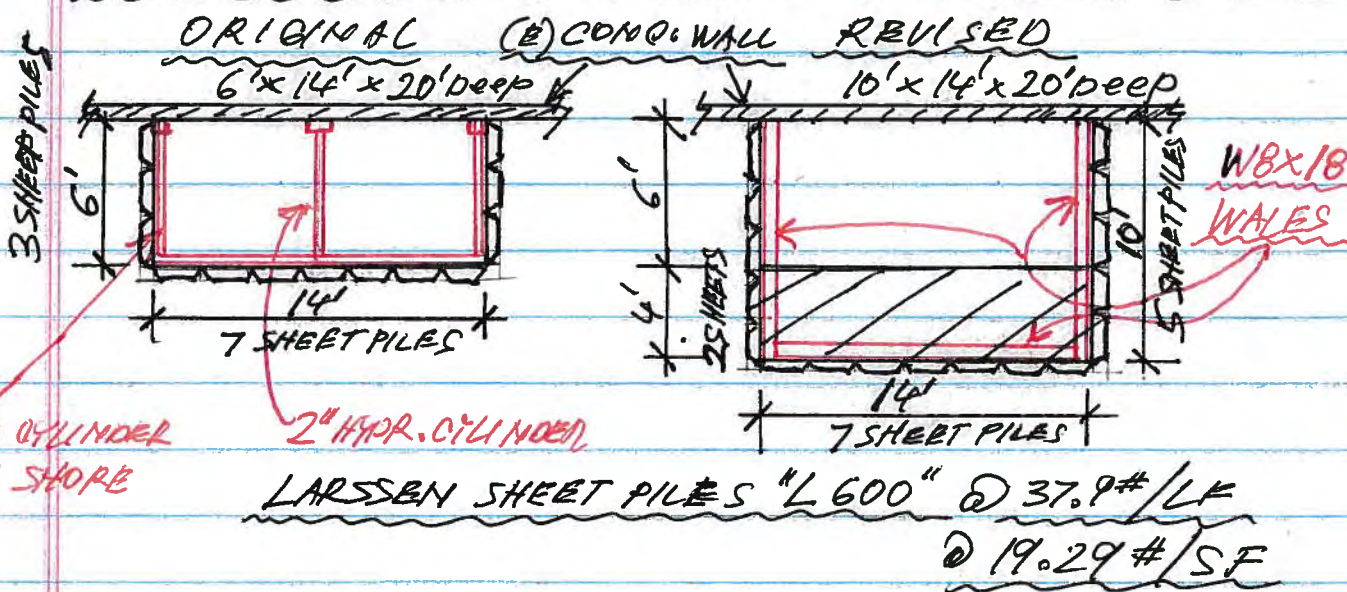 ORIGINAL (E) CONC. WALL REVISED
6'x14'x20'Deep 10'x14'x20'Deep
3 SHEEP PILES
6'
14'
7 SHEET PILES
CYLINDER
SHORE
2" HYDR. CILINDER
6'
4'
2 SHEETS
14'
7 SHEET PILES
10'
5 SHEET PILES
W8X18
WALES
LARSSEN SHEET PILES "L600" @ 37.9#/LF
@ 19.29#/SF